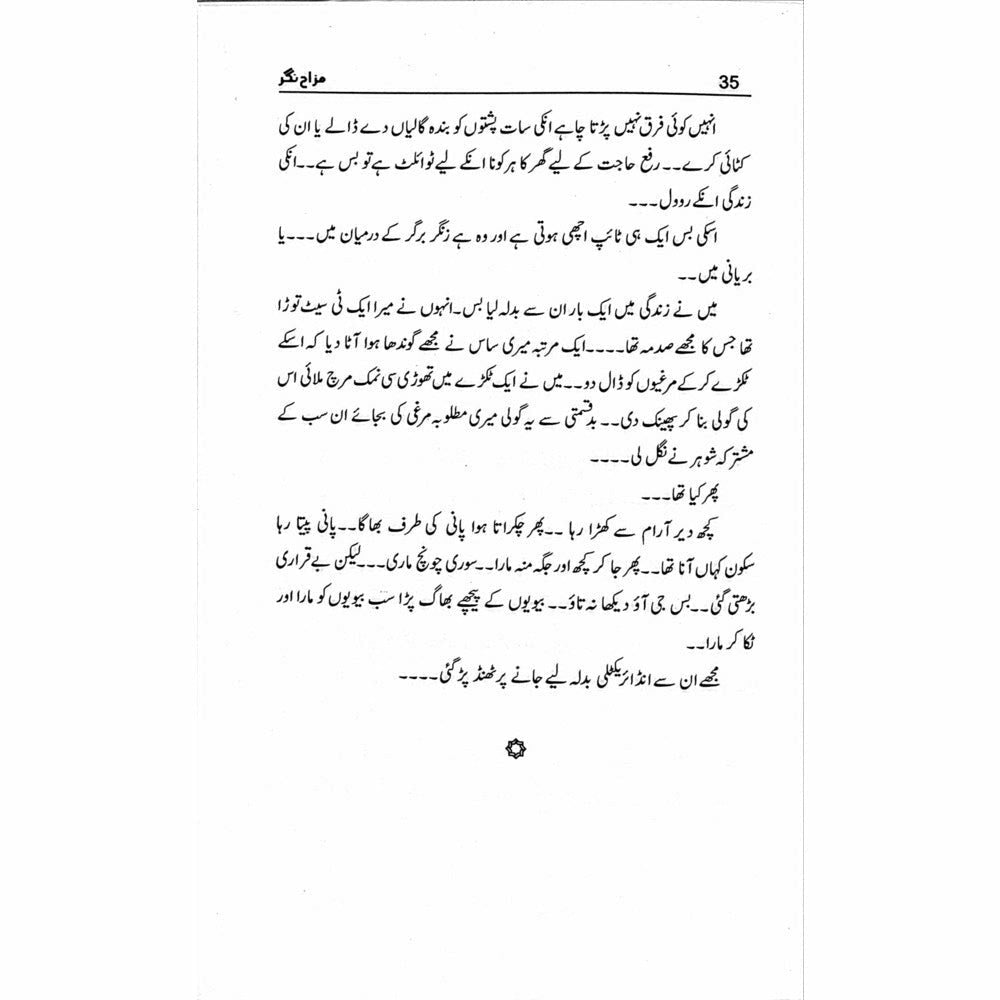 35 مزاح نگر
انہیں کوئی فرق نہیں پڑتا چاہے انکی سات پشتوں کو بندہ گالیاں دے ڈالے یا ان کی
کٹائی کرے۔۔ رفع حاجت کے لیے گھر کا ہر کونا انکے لیے ٹوائلٹ ہے تو بس ہے۔۔انکی
زندگی انکے روول۔۔۔
اسکی بس ایک ہی ٹائپ اچھی ہوتی ہے اور وہ ہے زنگر برگر کے درمیان میں۔۔۔یا
بریانی میں۔۔
میں نے زندگی میں ایک بار ان سے بدلہ لیا بس۔انہوں نے میرا ایک ٹی سیٹ توڑا
تھا جس کا مجھے صدمہ تھا۔۔۔۔ایک مرتبہ میری ساس نے مجھے گوندھا ہوا آٹا دیا کہ اسکے
ٹکڑے کر کے مرغیوں کو ڈال دو۔۔میں نے ایک ٹکڑے میں تھوڑی سی نمک مرچ ملائی اس
کی گولی بنا کر پھینک دی۔۔ بدقسمتی سے یہ گولی میری مطلوبہ مرغی کی بجائے ان سب کے
مشترکہ شوہر نے نگل لی۔۔۔۔
پھر کیا تھا۔۔۔
کچھ دیر آرام سے کھڑا رہا ۔۔پھر چکراتا ہوا پانی کی طرف بھاگا۔۔پانی پیتا رہا
سکون کہاں آنا تھا۔۔پھر جا کر کچھ اور جگہ منہ مارا۔۔سوری چونچ ماری۔۔۔لیکن بے قراری
بڑھتی گئی۔۔بس جی آؤ دیکھا نہ تاؤ۔۔ بیویوں کے پیچھے بھاگ پڑا سب بیویوں کو مارا اور
ٹکا کر مارا۔۔
مجھے ان سے انڈائریکٹلی بدلہ لیے جانے پر ٹھنڈ پڑ گئی۔۔۔۔